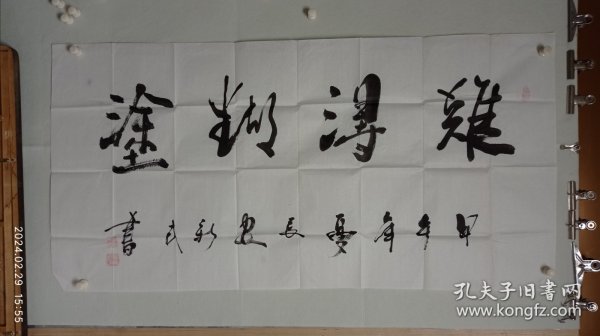 難得糊塗
甲午年夏長安新民書
2024.02.29 15:55
孔夫子旧書网
www.kongfz.com